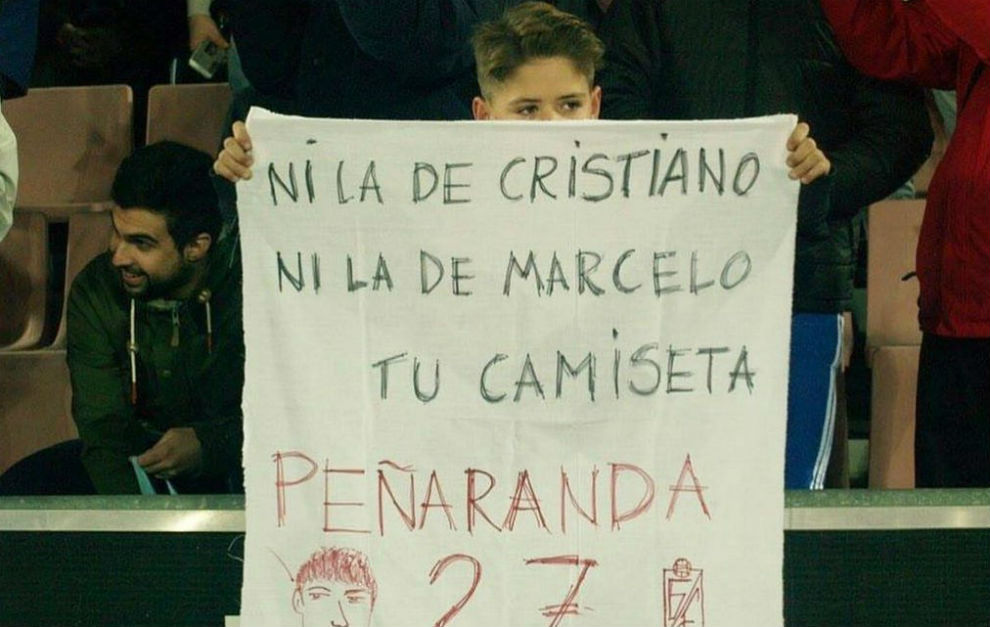 NI LA DE CRISTIANO
NI LA DE MARCELO
TU CAMISETA
PEÑARANDA
27